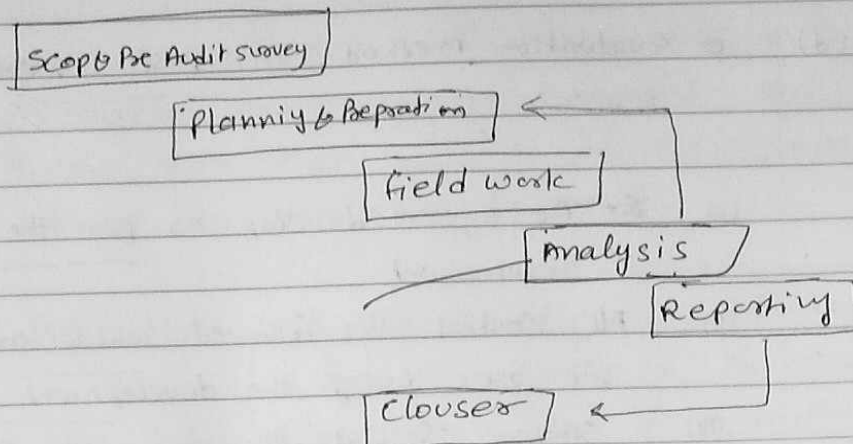 Scop & Pre Audit survey
Planniy & Prepration
field work
Analysis
Reporting
Clouser